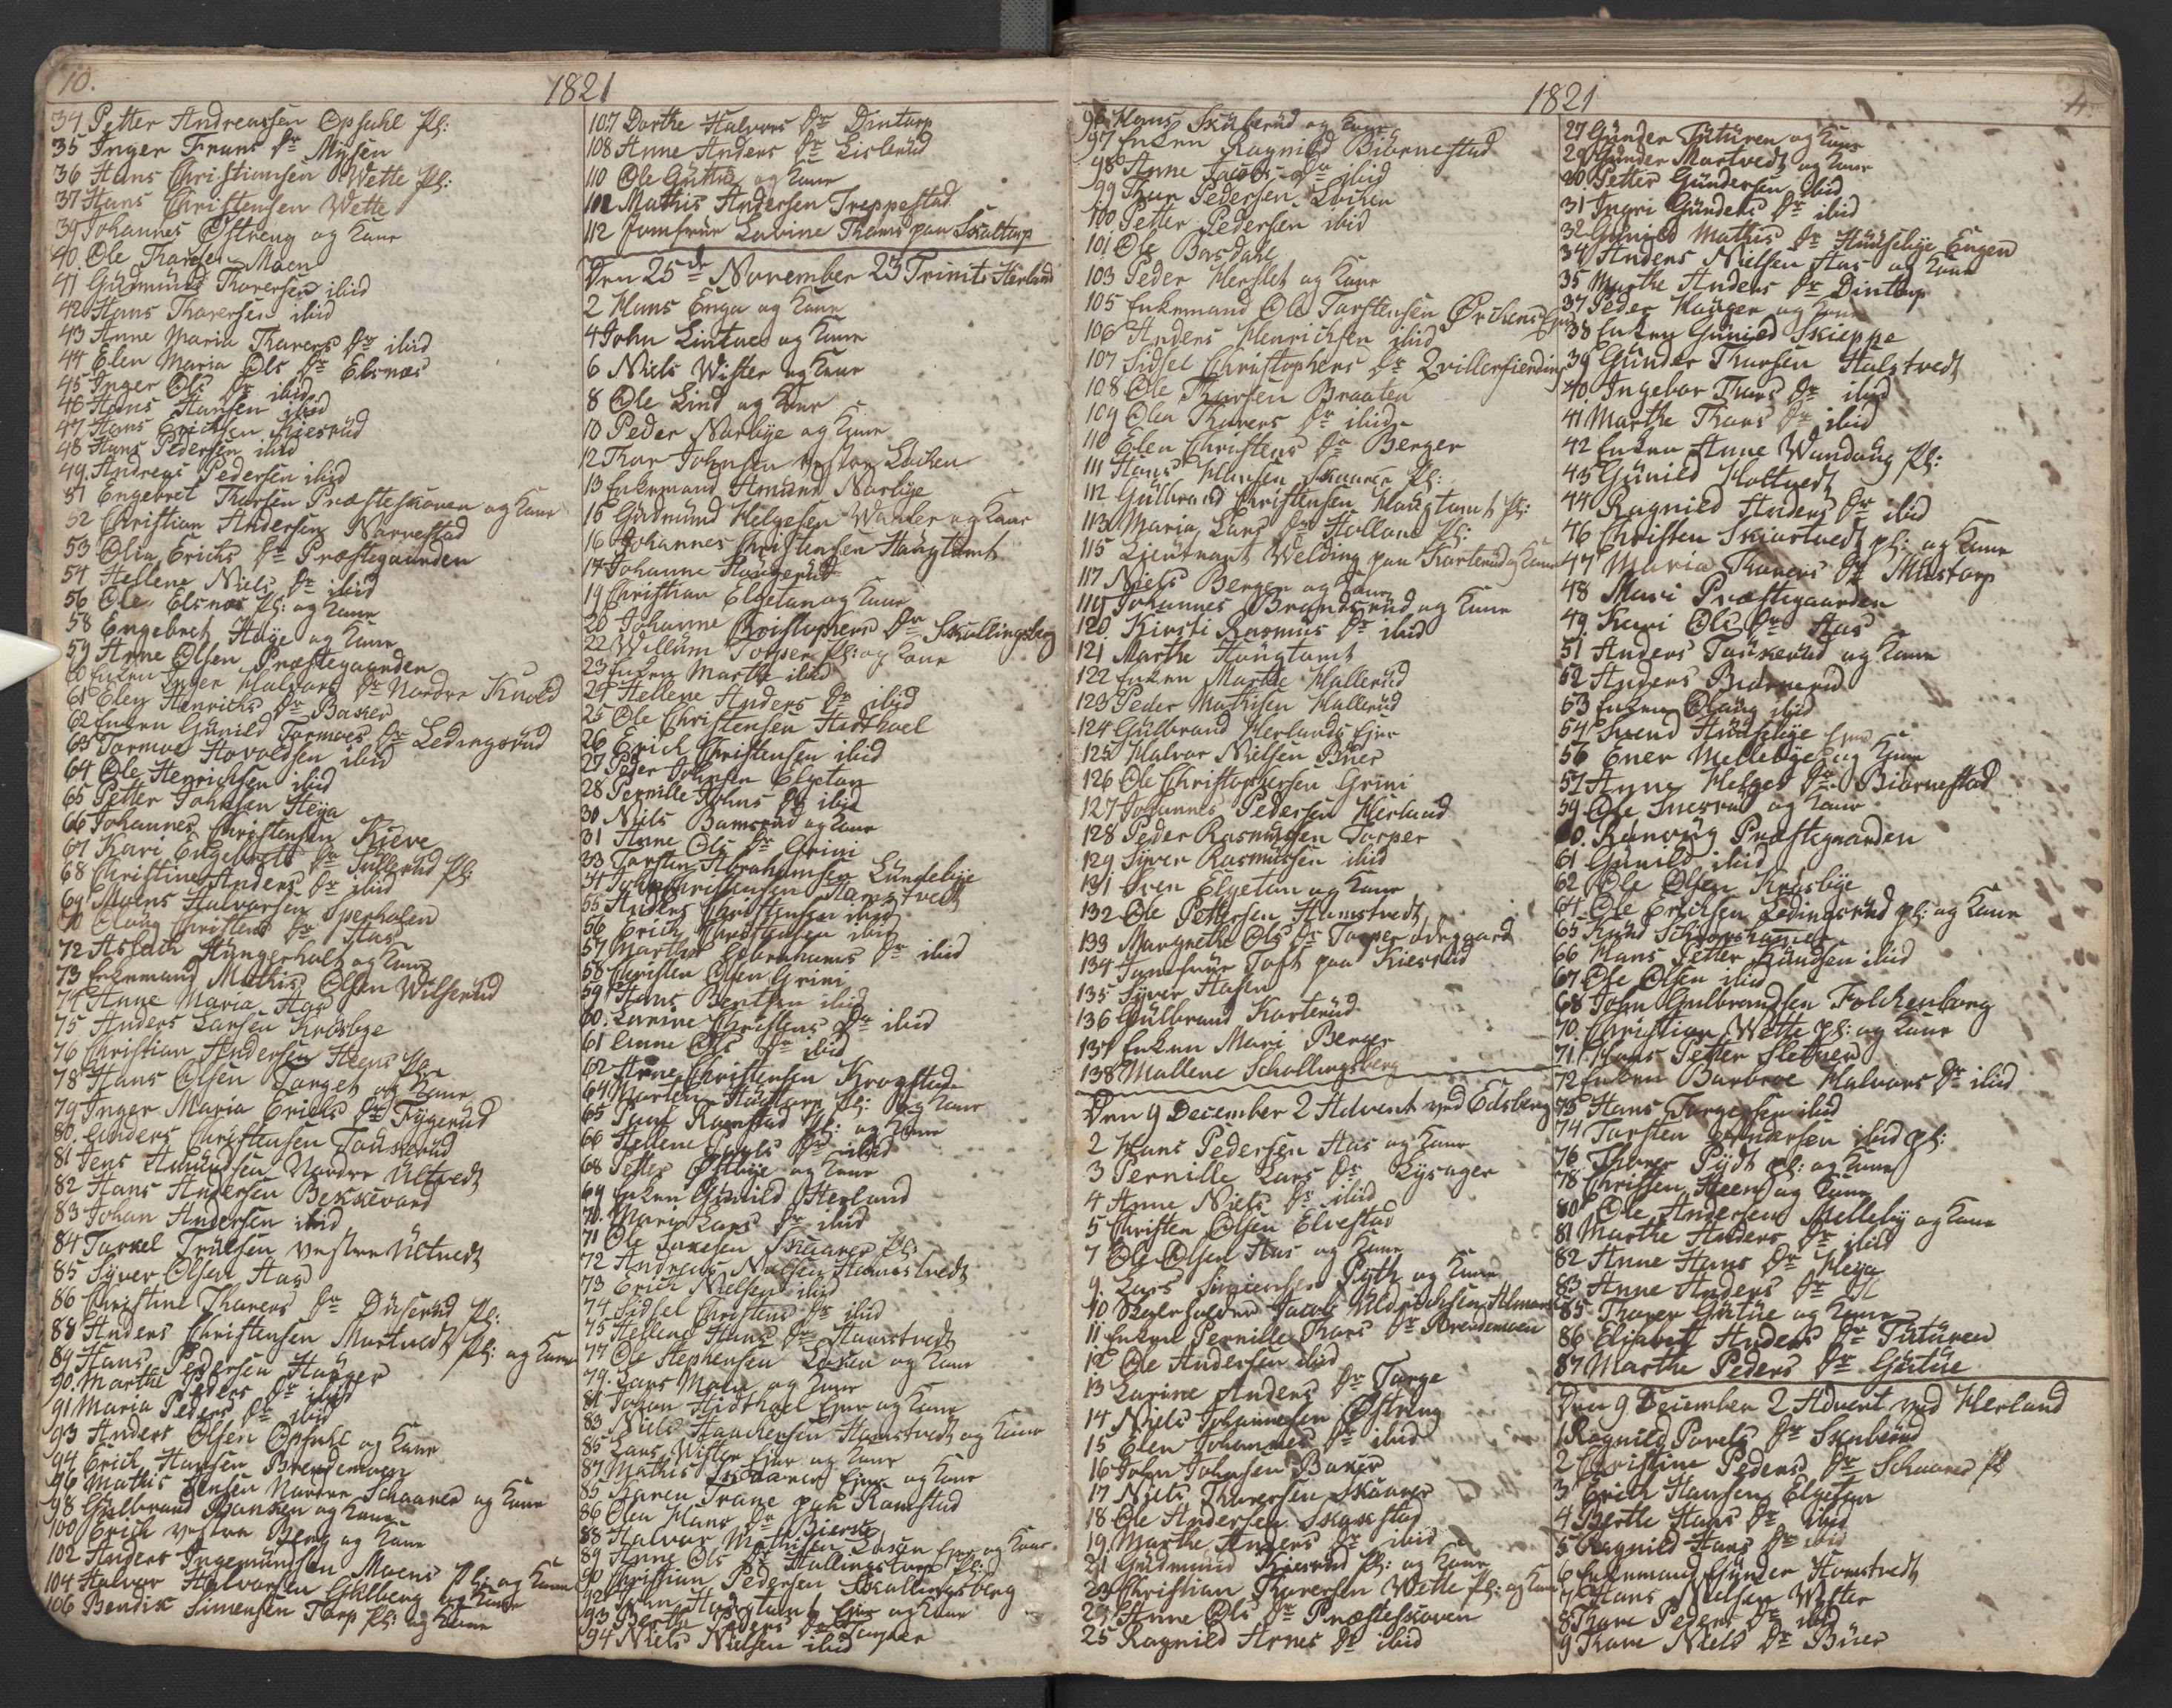 10.
1821
34 Petter Andreassen Opsahl Pl:
35 Inger Frans Dr Mysen
36 Hans Christiansen Wette Pl:
37 Hans Christensen Wette
39 Johannes Østreng og Kone
40 Ole Thorersen Moen
41 Gudmund Thorersen ibid
42 Hans Thorersen ibid
43 Anne Maria Thorers Dr ibid
44 Elen Maria Ols Dr Elsnæs
45 Inger Ols Dr ibid
46 Hans Hansen ibid
47 Hans Erichsen Kiesrud
48 Hans Pedersen ibid
49 Andreas Pedersen ibid
51 Engebret Thorsen Præsteskoven og Kone
52 Christian Andersen Narvestad
53 Olia Erichs Dr Præstegaarden
54 Hellene Niels Dr ibid
56 Ole Elsnæs Pl: og Kone
58 Engebret Høye og Kone
59 Arne Olsen Præstegaarden
60 Enken Inger Halvors Dr Nordre Knold
61 Elen Henrichs Dr Baser
62 Enken Gunild Tormoes Dr Ledingsrud
63 Tormoe Hovoldsen ibid
64 Ole Henrichsen ibid
65 Petter Johnsen Heya
66 Johannes Christensen Kieve
67 Kari Engebrets Dr Tullerud Pl:
68 Christine Anders Dr ibid
69 Moens Halvorsen Sperholen
70 Olaug Christens Dr Aas
72 Aslach Hungerholt og Kone
73 Enkemand Mathis Olsen Wilserud
74 Anne Maria Aas
75 Anders Larsen Krosbye
76 Christian Andersen Heens Pl:
78 Hans Olsen Torget og Kone
79 Inger Maria Erichs Dr Fyggerud
80 Anders Christensen Toüserud
81 Jens Amundsen Nordre Ultvedt
82 Hans Andersen Bekkevard
83 Johan Andersen ibid
84 Torkel Trulsen vestre Ultvedt
85 Syver Olsen Aas
86 Christine Thorers Dr Duserud Pl:
88 Anders Christensen Mortvedt Pl: og Kone
89 Hans Pedersen Hauger
90 Marthe Peders Dr ibid
91 Maria Peders Dr ibid
93 Anders Olsen Opsahl og Kone
94 Erich Hansen Brendemoen
96 Mathis Jensen Nordre Schaarer og Kone
98 Gulbrand Hansen og Kone
100 Erich vestre Berg og Kone
102 Anders Ingemundsen Moens Pl: og Kone
104 Halvor Halvorsen Gislberg og Kone
106 Bendix Simensen Torp Pl: og Kone
107 Dorthe Halvors Dr Dintorp
108 Anne Anders Dr Lislerud
110 Ole Guthu og Kone
111 Mathis Andersen Treppestad
112 Jomfrue Lovine Thams paa Skaltorp
Den 25de November 23 Trinit: Herland
2 Hans Enga og Kone
4 John Lintoe og Kone
6 Niels Wister og Kone
8 Ole Lind og Kone
10 Peder Narbye og Kone
12 Thor Johnsen vestre Løchen
13 Enkemand Amund Narbye
15 Gudmund Helgesen Warler og Kone
16 Johannes Christensen Haugtomt
17 Johanne Haugerud
19 Christian Elgetun og Kone
20 Johanne Christophers Dr Skullingsberg
22 Willum Torper Pl: og Kone
23 Enken Marthe ibid
24 Hellene Anders Dr ibid
25 Ole Christensen Hidthoel
26 Erich Christensen ibid
27 Peder Johnsen Elgetun
28 Pernille Johns Dr ibid
30 Niels Bamsrud og Kone
31 Anne Ols Dr Grini
33 Torsten Abrahamsen Lundebye
34 John Christensen Hamstvedt
55 Anders Christensen ibid
56 Erich Christensen ibid
57 Marthe Abrahams Dr ibid
58 Christen Olsen Grini
59 Hans Bentsen ibid
60 Lovine Christens Dr ibid
61 Anne Ols Dr ibid
62 Arne Christensen Krogstad
64 Morten Haültorp Pl: og Kone
65 Poul Ramstad Pl: og Kone
66 Hellene Pouls Dr ibid
68 Petter Østbye og Kone
69 Enken Gunild Herland
70 Mari Lars Dr ibid
71 Ole Larsen Skaarer Pl:
72 Andreas Nielsen Hamstvedt
73 Erich Nielsen ibid
74 Sidsel Christens Dr ibid
75 Hellene Hans Dr Hamstvedt
77 Ole Stephensen Løken og Kone
79 Lars Moen og Kone
81 Johan Hidthoel Ejer og Kone
83 Niels Haachensen Hamstvedt og Kone
85 Lars Wister Ejer og Kone
87 Mathis Skaarer Ejer og Kone
85 Karen Trane paa Ramstad
86 Olea Hans Dr Biersø
88 Halvor Mathisen Løken Ejer og Kone
89 Anne Ols Dr Hallingstorp Pl:
90 Christian Pedersen Skallingsberg
92 John Haugtomt Ejer og Kone
93 Berthe Peders Dr Torper
94 Niels Nielsen ibid
1821
4.
96 Hans Skuberud og Kone
97 Enken Ragnild Biørnestad
98 Anne Jacobs Dr ibid
99 Thor Pedersen Løchen
100 Petter Pedersen ibid
101 Ole Borsdahl
103 Peder Herslet og Kone
105 Enkemand Ole Torstensen Ørichens
106 Anders Henrichsen ibid
107 Sidsel Christophers Dr Qvillerfierding
108 Ole Thorsen Braaten
109 Olea Thorers Dr ibid
110 Elen Christens Dr Berger
111 Hans Hansen Skaarer Pl:
112 Gulbrand Christensen Haugtomt Pl:
113 Maria Lars Dr Holland Pl:
115 Lieutnant Welding paa Karterud og Kone
117 Niels Berger og Kone
119 Johannes Brandsrud og Kone
120 Kirsti Rasmus Dr ibid
121 Marthe Haugtomt
122 Enken Marthe Hallerud
123 Peder Mathisen Hallerud
124 Gulbrand Herlands Ejer
125 Halvor Nielsen Buer
126 Ole Christophersen Grini
127 Johannes Pedersen Herland
128 Peder Rasmussen Torper
129 Syver Rasmussen ibid
131 Sven Elgetun og Kone
132 Ole Pettersen Hamstvedt
133 Margrethe Ols Dr Torper ødegaard
134 Jomfrue Toft paa Kiesrud
135 Syver Hasen
136 Gulbrand Karterud
137 Enken Mari Berger
138 Mallene Schollingsberg
Den 9 December 2 Advent ved Edsberg
2 Hans Pedersen Aas og Kone
3 Pernille Lars Dr Rysager
4 Anne Niels Dr ibid
5 Christen Olsen Elvestad
7 Ole Olsen Aas og Kone
9 Lars Sivensen Pyth og Kone
10 Skoleholder Jacob Uldrichsen Almoe
11 Enken Pernille Thors Dr Brendemoen
12 Ole Andersen ibid
13 Karine Anders Dr Torge
14 Niels Johannesen Østreng
15 Elen Johannes Dr ibid
16 John Johnsen Baser
17 Niels Thorersen Skaarer
18 Ole Andersen Skaxstad
19 Marthe Anders Dr ibid
21 Gudmund Kiesrud Pl: og Kone
23 Christian Thorersen Wette Pl: og Kone
24 Anne Ols Dr Præsteskoven
25 Ragnild Arnes Dr ibid
27 Gunder Tuturen og Kone
29 Gunder Mortvedt og Kone
30 Petter Gundersen ibid
31 Ingri Gunders Dr ibid
32 Gunild Mathis Dr Huuselye Engen
34 Anders Nielsen Aas og Kone
35 Marthe Anders Dr Dintorp
37 Peder Hauger og Kone
38 Enken Gunild Skieppe
39 Gunder Thorsen Halstvedt
40 Ingebor Thors Dr ibid
41 Marthe Thors Dr ibid
42 Enken Anne Wandaug Pl:
43 Gunild Holtvedt
44 Ragnild Anders Dr ibid
46 Christen Skiortvedt pl: og Kone
47 Maria Thorers Dr Mustorp
48 Mari Præstegaarden
49 Kari Ols Dr Aas
51 Anders Tøüserud og Kone
52 Anders Biørnerud
53 Enken Olaug ibid
54 Svend Huuselye Ejer
56 Ener Mellebye og Kone
57 Anne Helges Dr Biørnestad
59 Ole Snesrud og Kone
60 Ranvug Præstegaarden
61 Gunild ibid
62 Ole Olsen Krosbye
64 Ole Erichsen Ledingsrud pl: og Kone
65 Knud Schorshammer
66 Hans Petter Knudsen ibid
67 Ole Olsen ibid
68 John Gulbrandsen Folchenborg
70 Christian Wette pl: og Kone
71 Hans Petter Sletner
72 Enken Barbroe Halvors Dr ibid
73 Hans Torgersen ibid
74 Torsten Andersen ibid pl:
76 Thorer Pydt pl: og Kone
78 Christen Heen og Kone
80 Ole Andersen Melleby og Kone
81 Marthe Anders Dr ibid
82 Anne Hans Dr Heya
83 Anne Anders Dr
85 Thorer Gutue og Kone
86 Elisabeth Anders Dr Tuturen
87 Marthe Peders Dr Gutue
Den 9 December 2 Advent ved Herland
1 Ragnild Povels Dr Skuberud
2 Christine Peders Dr Schaarer Pl
3 Erich Hansen Elgetun
4 Berthe Hans Dr ibid
5 Ragnild Hans Dr ibid
6 Enkemand Gunder Homstvedt
7 Hans Nielsen Wister
8 Thore Peders Dr ibid
9 Thore Niels Dr Buer